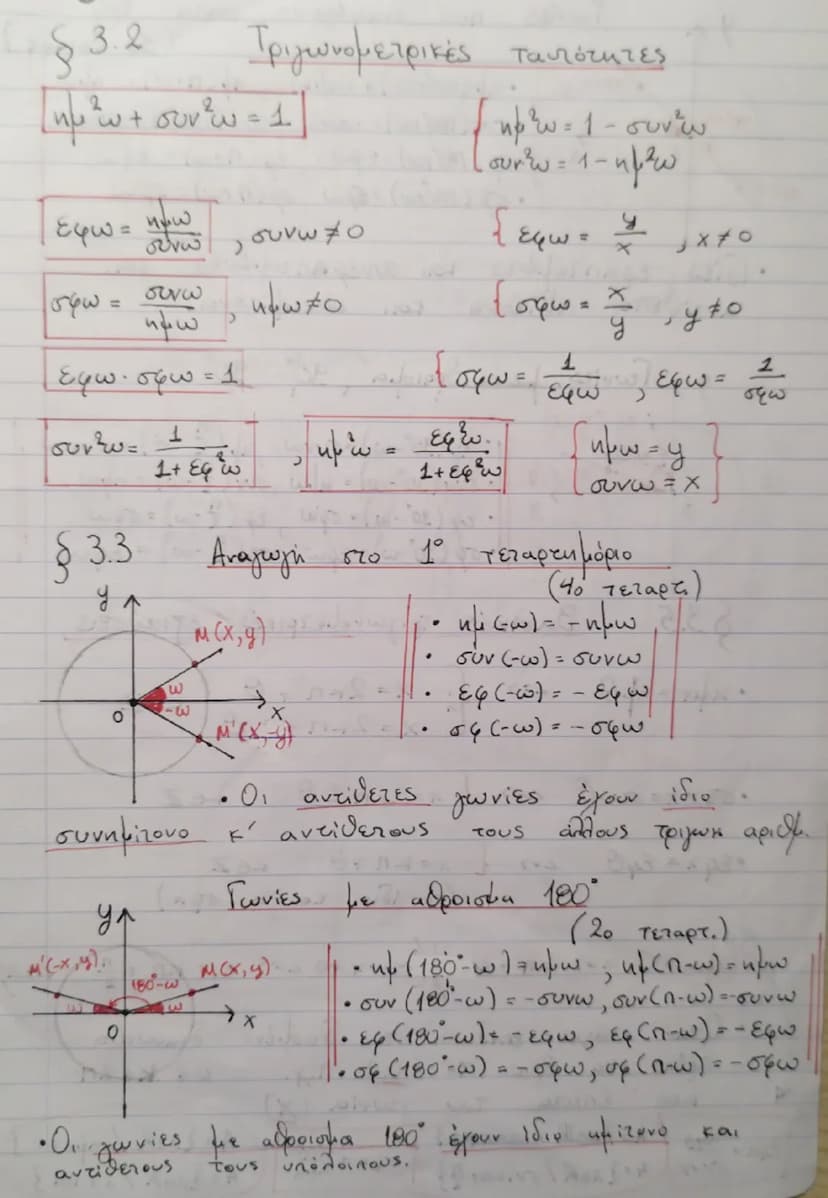 § 3.2 Τριγωνομετρικές ταυτότητες
ημ²ω + συν²ω = 1 { ημ²ω = 1 - συν²ω
συν²ω = 1 - ημ²ω
εφω = ημω/συνω , συνω ≠ 0 { εφω = y/x , x ≠ 0
σφω = συνω/ημω , ημω ≠ 0 { σφω = x/y , y ≠ 0
εφω · σφω = 1 { σφω = 1/εφω , εφω = 1/σφω
συν²ω = 1/(1 + εφ²ω) , ημ²ω = εφ²ω/(1 + εφ²ω) { ημω = y
συνω = x }
§ 3.3 Αναγωγή στο 1° τεταρτημόριο
(4ο τεταρτ.)
y
M(x,y)
ω
-ω
O
x
M'(x,-y)
• ημ(-ω) = - ημω
• συν(-ω) = συνω
• εφ(-ω) = - εφω
• σφ(-ω) = - σφω
• Οι αντίθετες γωνίες έχουν ίδιο
συνημίτονο κ' αντίθετους τους άλλους τριγων αριθμ.
Γωνίες με άθροισμα 180°
(2ο τεταρτ.)
y
M'(-x,y)
M(x,y)
180°-ω
ω
ω
O
x
• ημ(180°-ω) = ημω , ημ(π-ω) = ημω
• συν(180°-ω) = -συνω, συν(π-ω) = -συνω
• εφ(180°-ω) = -εφω, εφ(π-ω) = -εφω
• σφ(180°-ω) = -σφω, σφ(π-ω) = -σφω
• Οι γωνίες με άθροισμα 180° έχουν ίδιο ημίτονο και
αντίθετους τους υπόλοιπους.